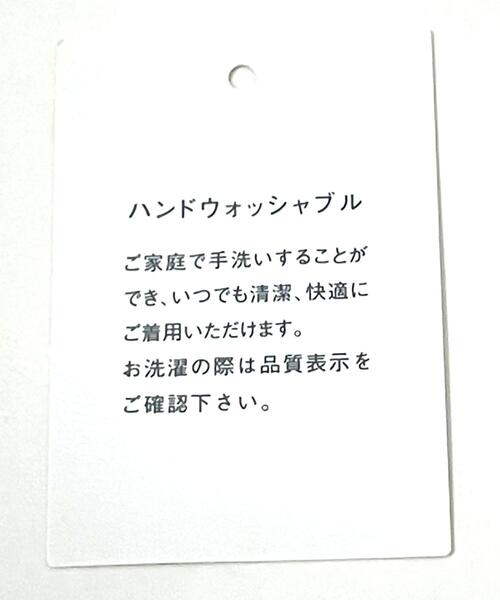 ハンドウォッシャブル
ご家庭で手洗いすることが
でき、いつでも清潔、快適に
ご着用いただけます。
お洗濯の際は品質表示を
ご確認下さい。